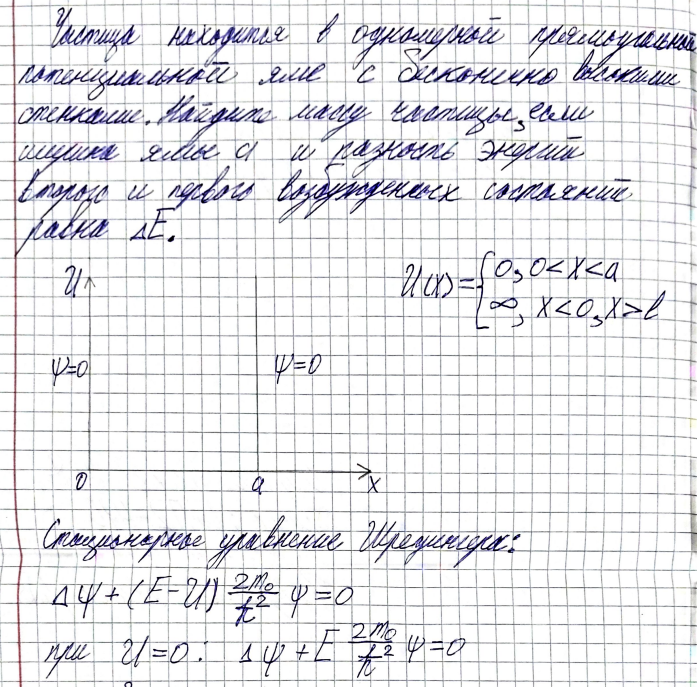 Частица находится в одномерной прямоугольной
потенциальной яме с бесконечно высокими
стенками. Найдите массу частицы, если
ширина ямы a и разность энергий
второго и первого возбужденных состояний
равна ΔE.
U
U(x) = { 0, 0 < x < a
∞, x < 0, x > l
ψ=0 ψ=0
0 a x
Стационарное уравнение Шредингера:
Δψ + (E - U) 2m₀/ħ² ψ = 0
при U = 0: Δψ + E 2m₀/ħ² ψ = 0